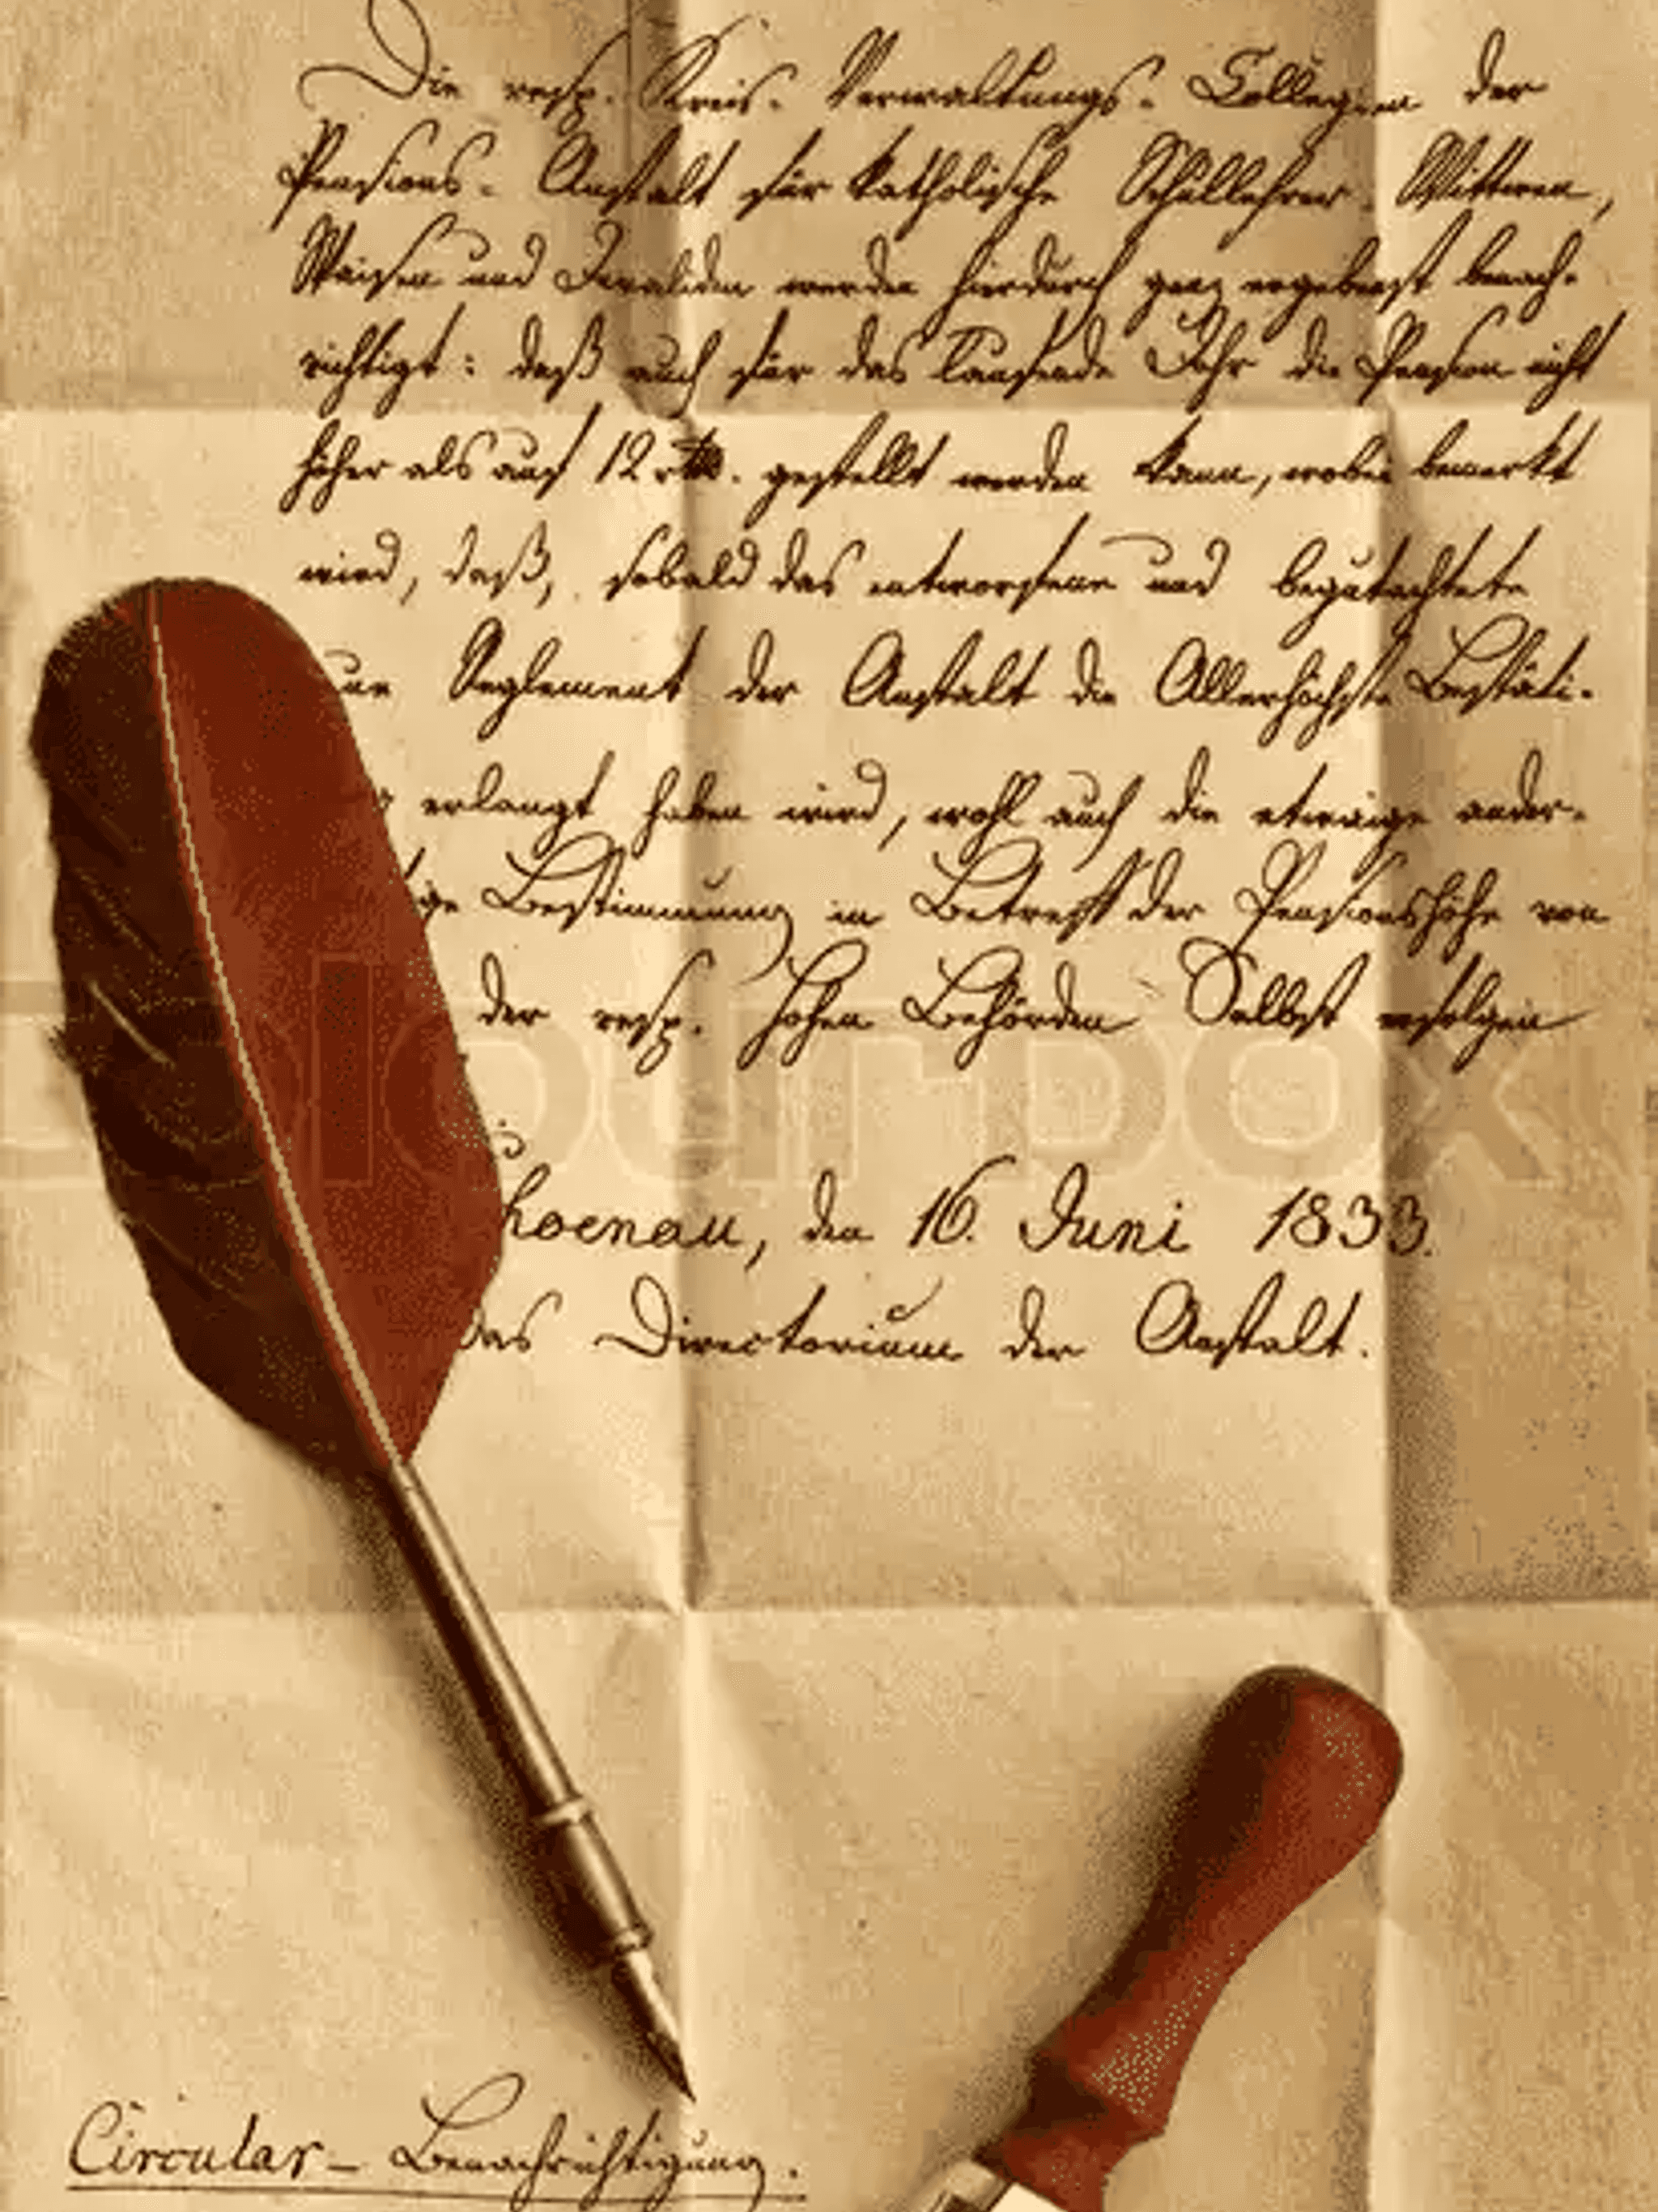 Die resp. Kreis-Verwaltungs-Collegien der
Pensions-Anstalt für katholische Schullehrer-Wittwen,
Waisen und Invaliden werden hierdurch ganz ergebenst benach-
richtigt: daß auch für das laufende Jahr die Pension nicht
höher als auf 12 rthl. gestellt werden kann, wobei bemerkt
wird, daß, sobald das entworfene und begutachtete
Reglement der Anstalt die Allerhöchste Bestäti-
erlangt haben wird, wohl auch die etwaige ander-
ige Bestimmung in Betreff der Pensionshöhe von
der resp. hohen Behörden Selbst erfolgen
hoenau, den 16. Juni 1833.
Das Directorium der Anstalt.
Circular-Benachrichtigung.